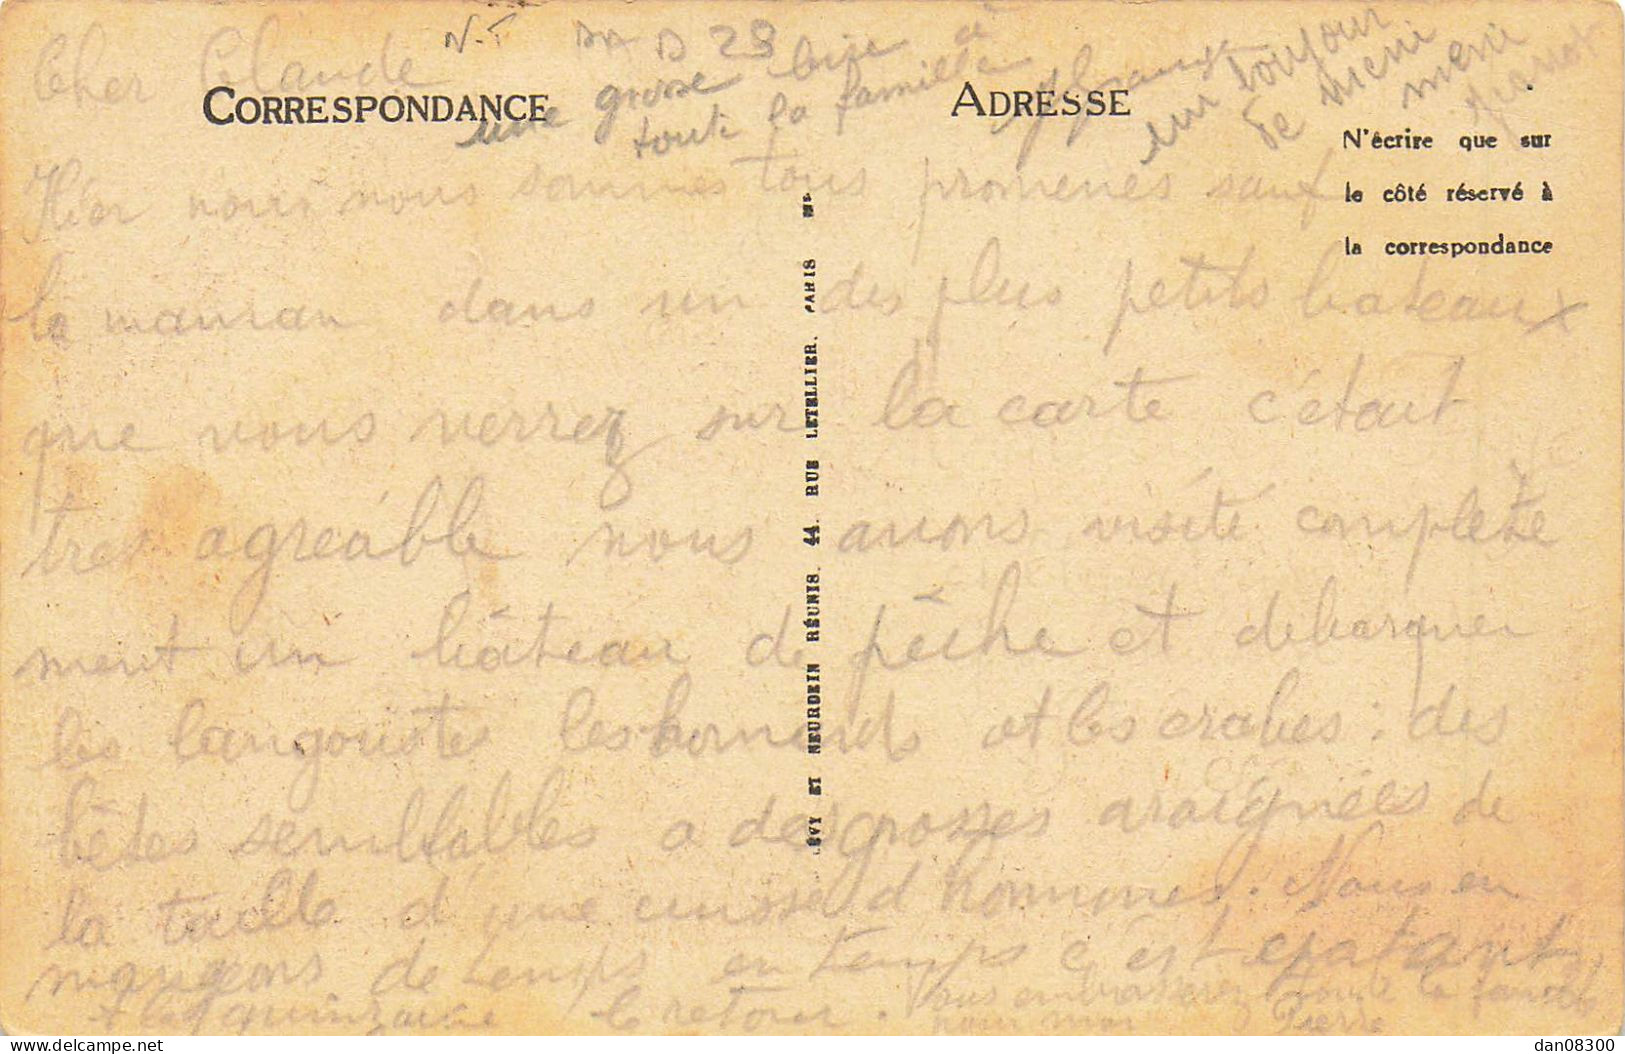 Cher Claude
N.T
23
une grosse bise à
toute la famille
CORRESPONDANCE
ADRESSE
un toujour
N'écrire que sur
le côté réservé à
la correspondance
Hier nous nous sommes tous promenés sauf
la maman dans un des plus petits bateaux
que vous verrez sur la carte c'était
tres agreable nous avons visité complète
ment un bâteau de pêche et debarquer
les langoustes les homards et les crabes : des
bêtes semblables a des grosses araignées de
la taille d'une cuisse d'hommes. Nous en
mangeons de temps en temps c'est epatant
quinzaine le retour. Vous embrasserez toute la famille
pour moi Pierre
LÉVY ET NEURDEIN RÉUNIS. 44. RUE LETELLIER. PARIS
dan08300